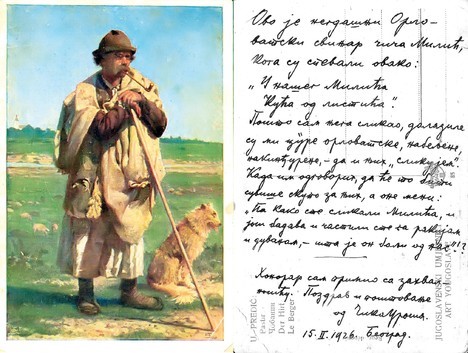 Ово је негдашњи Орло-
ватски свињар чича Милић,
кога су певали овако:
„У нашег Милића
Кућа од листића“.
Пошто сам њега сликао, долазиле
су ми цуре орловатске, набељене,
накинђурене, – да и њих „сликујем“.
Када им одговорих, да ће то бити
сувише скупо за њих, а оне мени:
„Па како сте сликали Милића, и
још бадава и частили сте га ракијом
и дуваном, – шта је он бољи од нас?!“
Хонорар сам примио са захвал-
ношћу. Поздрав и поштовање
од Чика Уроша.
15. II. 1926. Београд.
U. PREDIĆ:
Pastir
Чобанин
Der Hirt
Le Berger
JUGOSLAVENSKI
ART YOUGOSLAVE